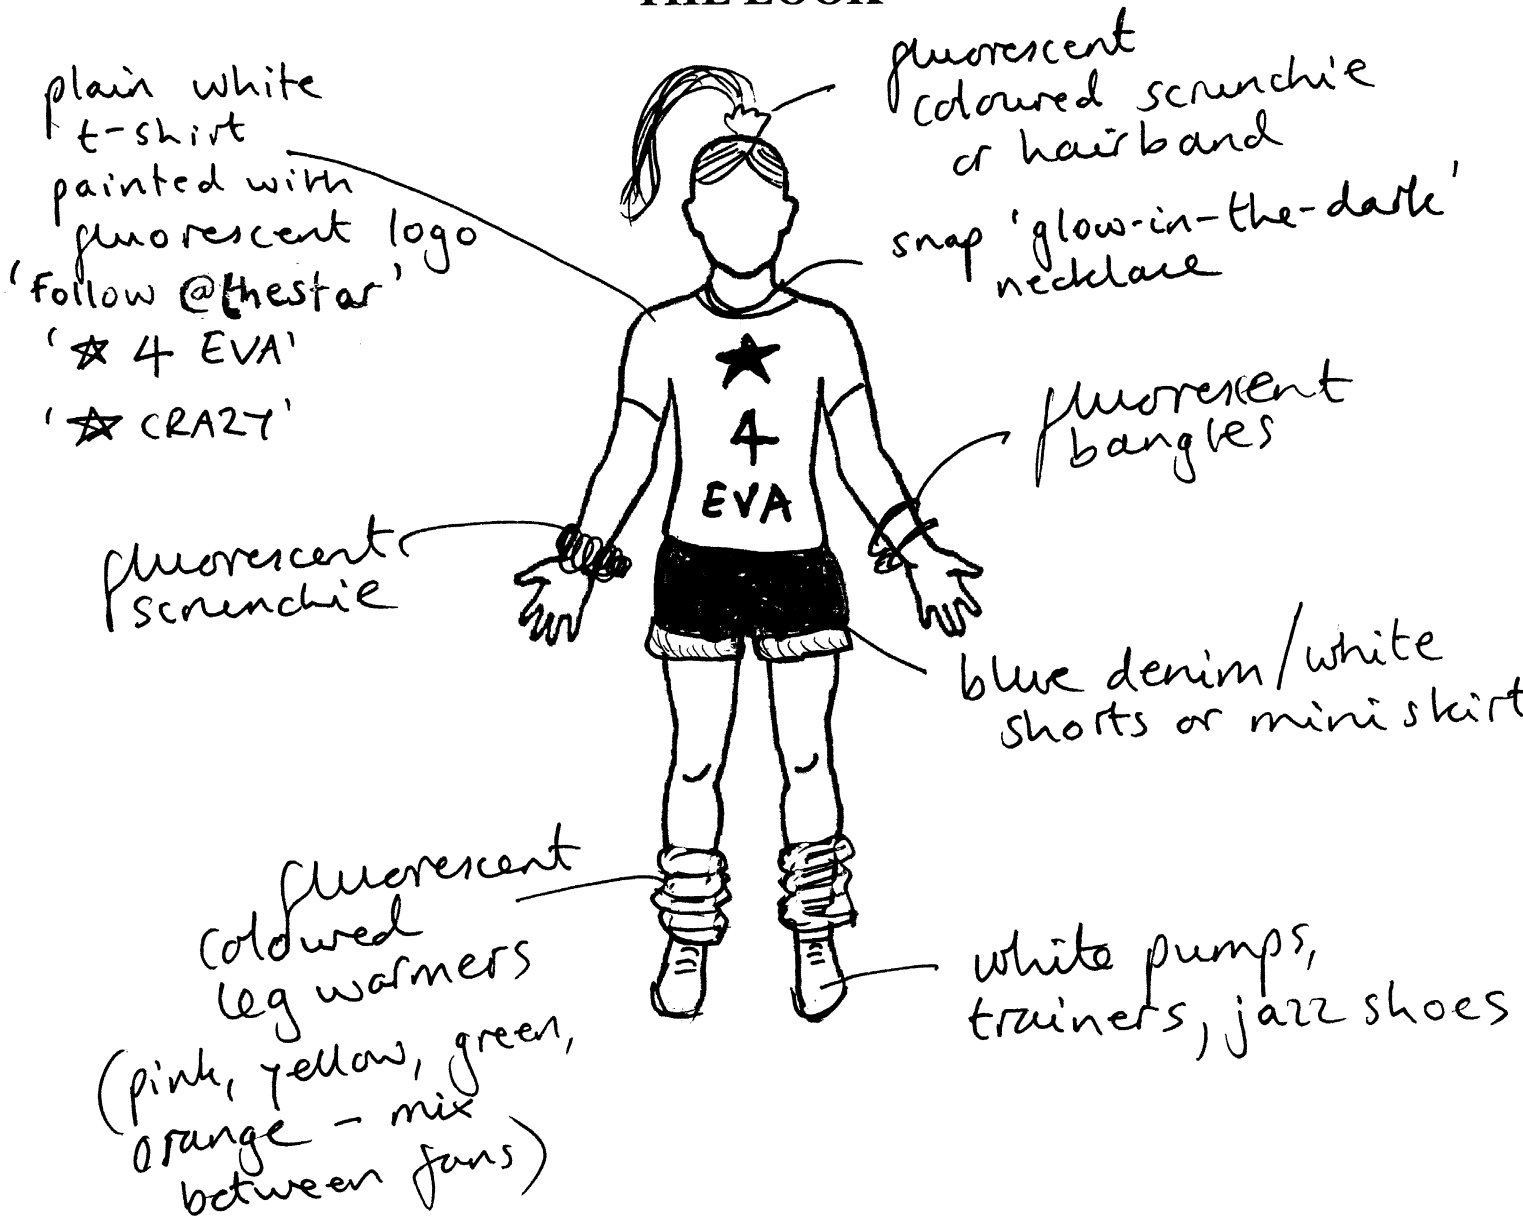 THE LOOK
plain white
t-shirt
painted with
fluorescent logo
'Follow @thestar'
'☆ 4 EVA'
'☆ CRAZY'
fluorescent
coloured scrunchie
or hairband
snap 'glow-in-the-dark'
necklace
★
4
EVA
fluorescent
bangles
fluorescent
scrunchie
blue denim/white
shorts or mini skirt
fluorescent
coloured
leg warmers
(pink, yellow, green,
orange - mix
between fans)
white pumps,
trainers, jazz shoes